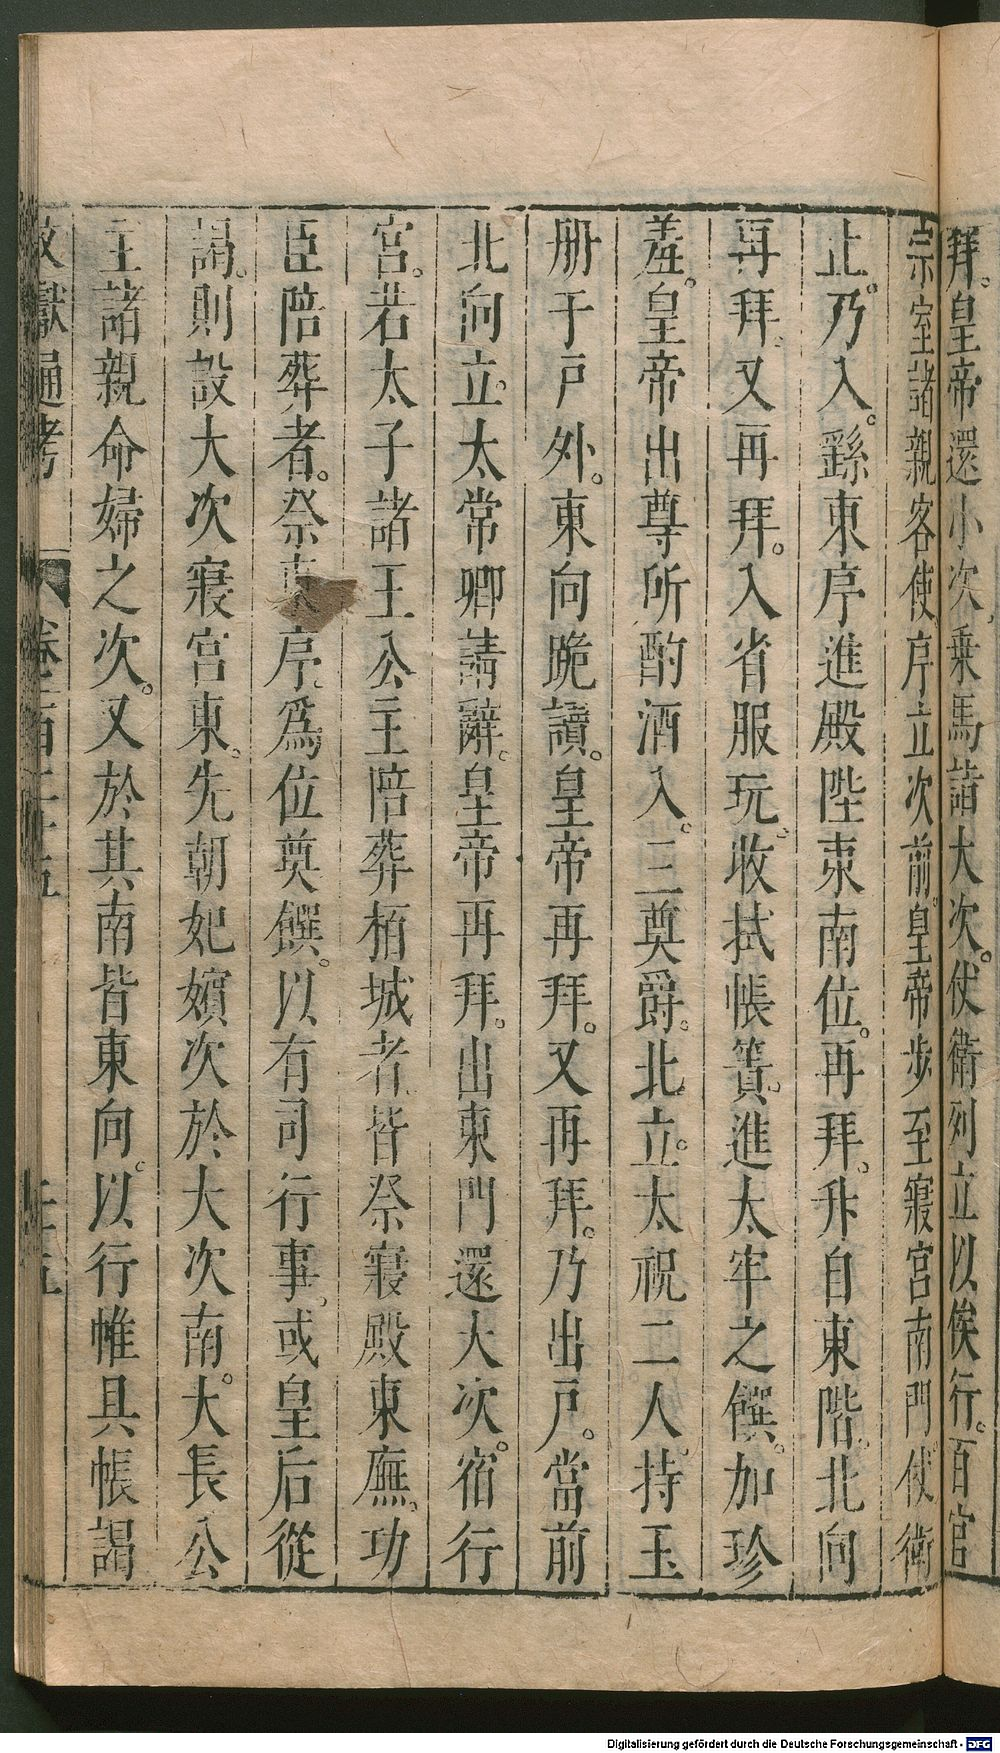 拜。皇帝還小次。乗馬詣大次。仗衛列立以俟行。百官
宗室諸親客使。序立次前。皇帝歩至寢宮南門。仗衛
止。乃入。繇東序進殿陛東南位。再拜。升自東階。北向
再拜。又再拜。入省服玩。收拭帳簀。進太牢之饌。加珍
羞。皇帝出尊所酌酒入。三奠爵。北立。太祝二人。持玉
册于戸外。東向跪讀。皇帝再拜。又再拜。乃出戸。當前
北向立。太常卿請辭。皇帝再拜。出東門還大次。宿行
宮。若太子諸王公主陪葬栢城者。皆祭寢殿東廡。功
臣陪葬者。祭東序。爲位奠饌。以有司行事。或皇后從
謁。則設大次寢宮東。先朝妃嬪次於大次南。大長公
主諸親命婦之次。又於其南皆東向。以行帷具帳謁
文獻通考 卷一百二十五 二十五
Digitalisierung gefördert durch die Deutsche Forschungsgemeinschaft - DFG